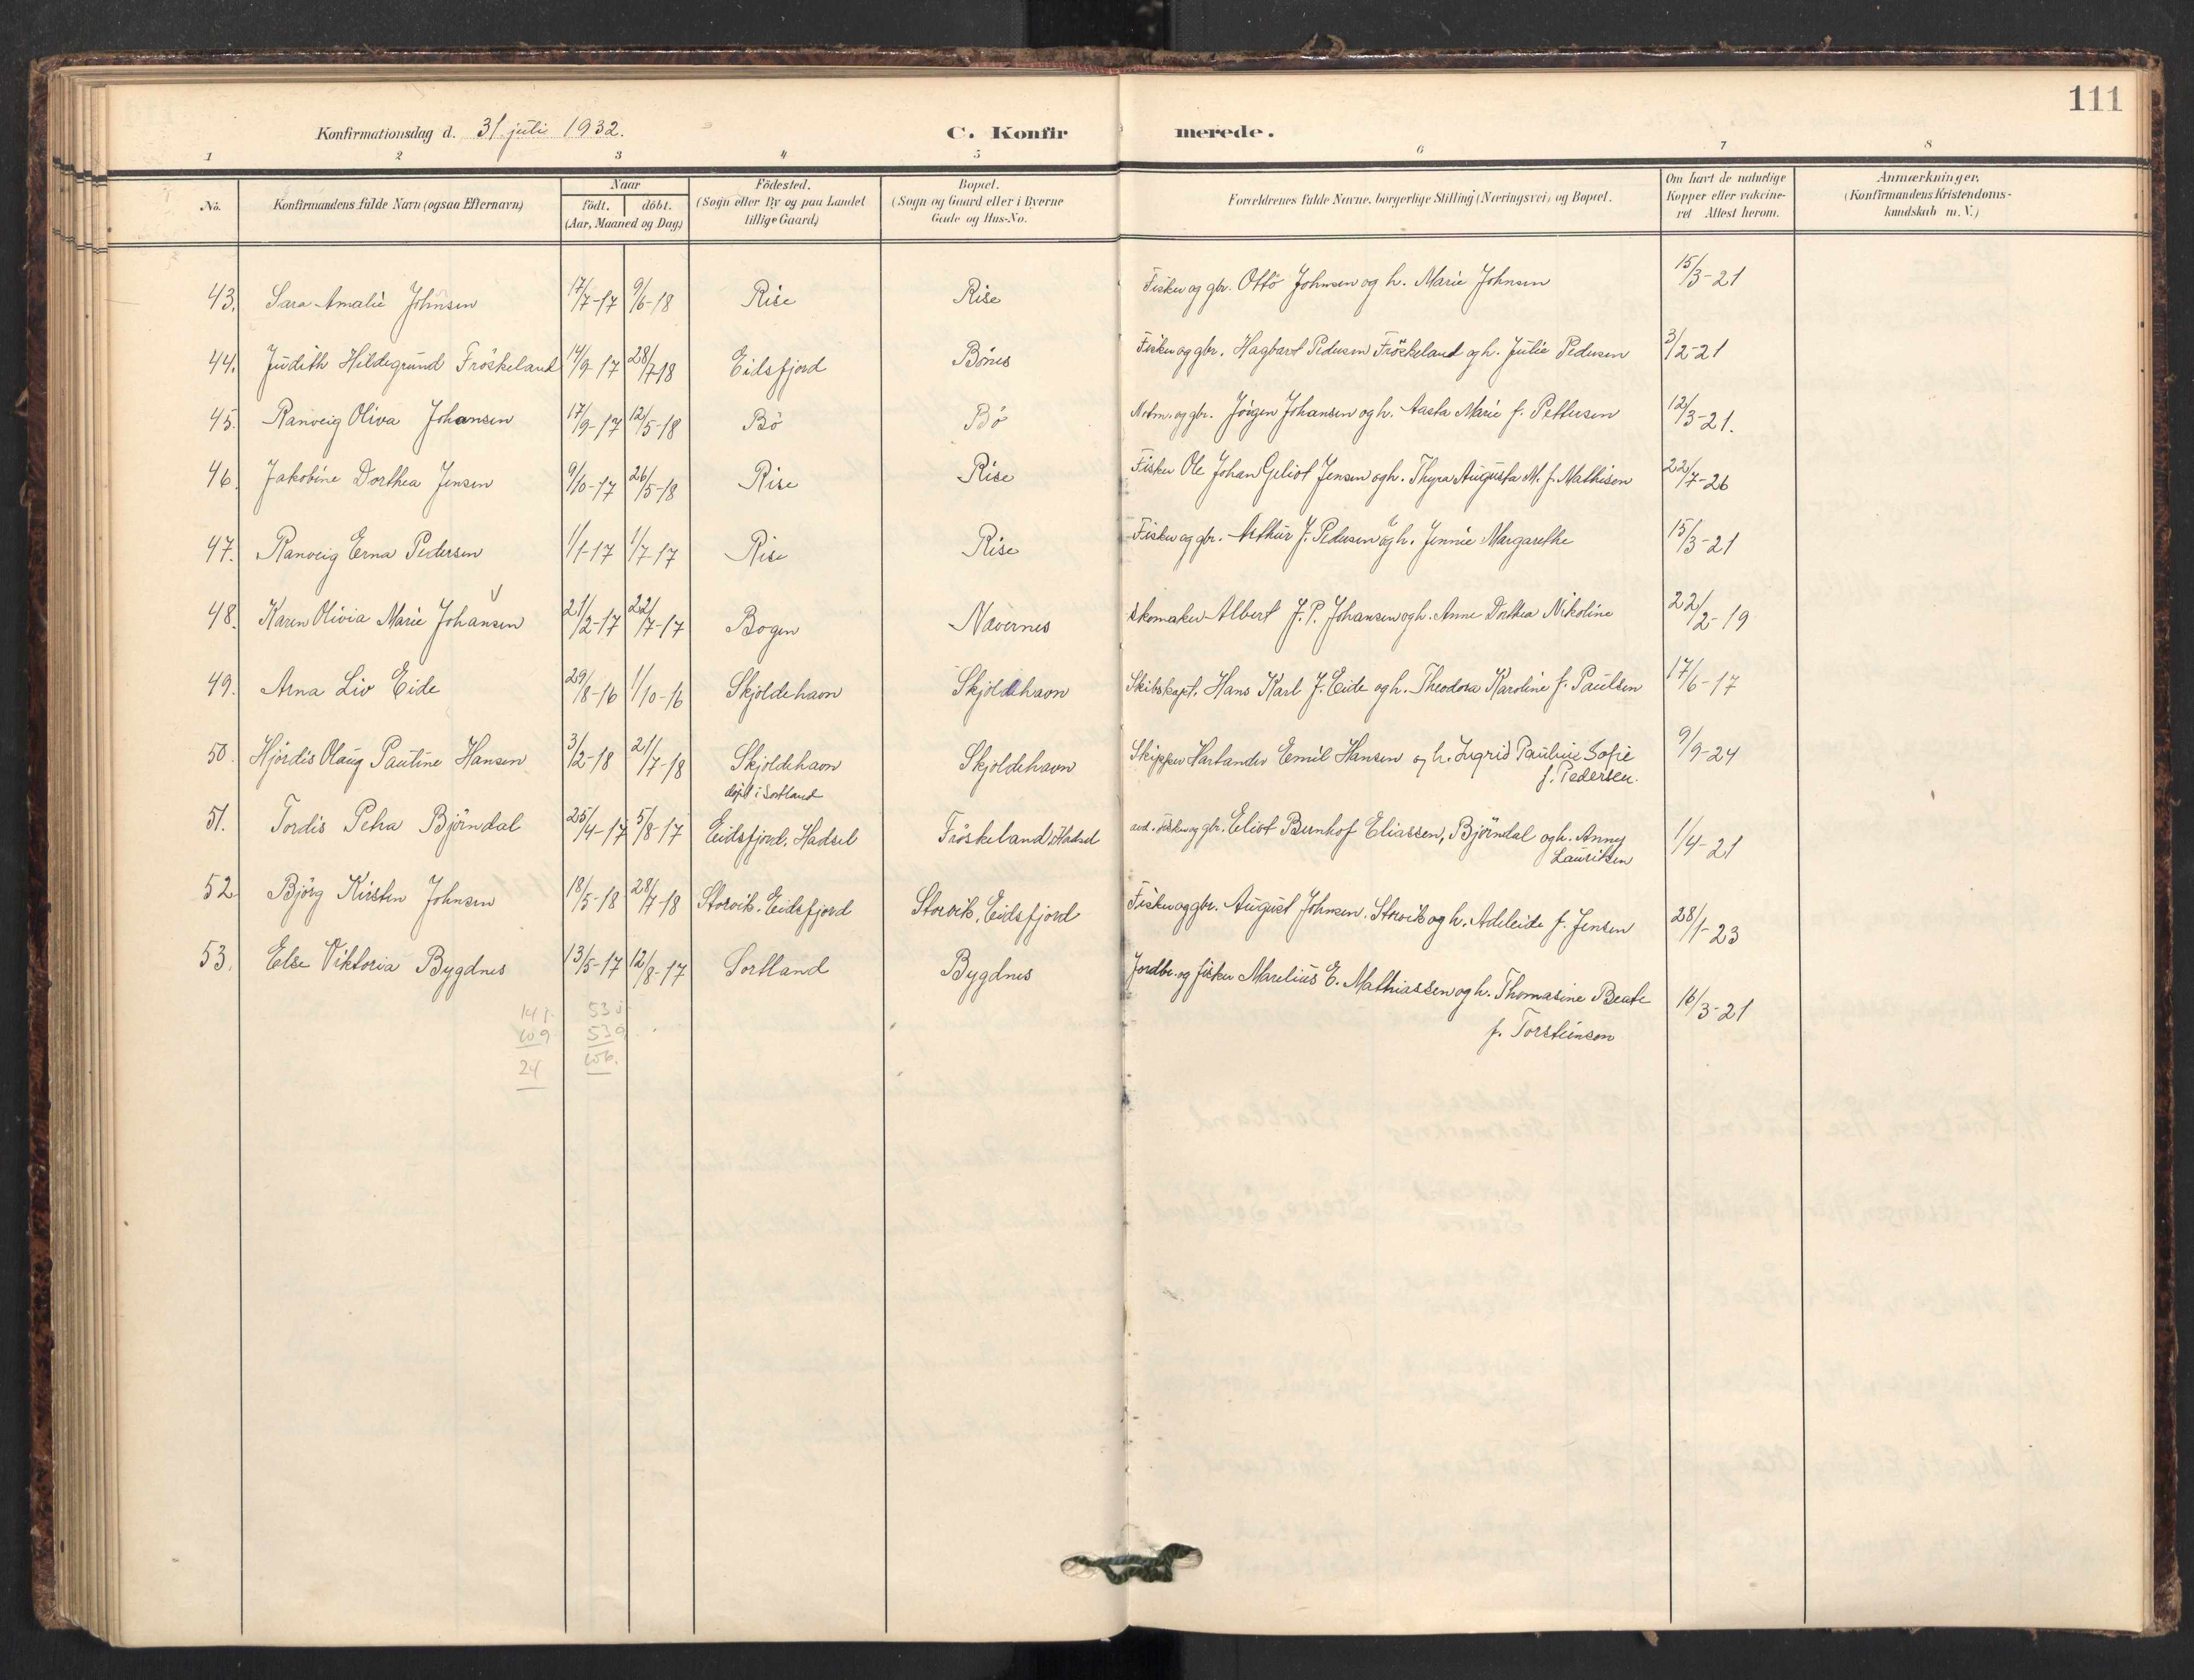 111
Konfirmationsdag d. 31. juli 1932.
C. Konfirmerede.
1 2 3 4 5 6 7 8
No. Konfirmandens fulde Navn (ogsaa Efternavn) Naar født. døbt. (Aar, Maaned og Dag) Fødested. (Sogn eller By og paa Landet tillige Gaard) Bopæl. (Sogn og Gaard eller i Byerne Gade og Hus-No. Forældrenes fulde Navne, borgerlige Stilling (Næringsvei) og Bopæl. Om havt de naturlige Kopper eller vakcineret Attest herom. Anmærkninger. (Konfirmandens Kristendomskundskab m. V.)
43. Sara Amalie Johnsen 17/7-17 9/6-18 Rise Rise Fisker og gbr. Otto Johnsen og h. Marie Johnsen 15/3-21
44. Judith Hildegrund Fröskeland 14/9-17 28/7-18 Eidsfjord Bönes Fisker og gbr. Hagbart Pedersen Fröskeland og h. Julie Pedersen 3/2-21
45. Ranveig Oliva Johansen 17/9-17 12/5-18 Bö Bö Notm. og gbr. Jörgen Johansen og h. Aasta Marie f. Pettersen 12/3-21.
46. Jakobine Dorthea Jensen 9/10-17 26/5-18 Rise Rise Fisker Ole Johan Geliot Jensen og h. Thyra Augusta M. f. Mathisen 22/7-26
47. Ranveig Erna Pedersen 1/1-17 1/7-17 Rise Rise Fisker og gbr. Arthur J. Pedersen og h. Jennie Margarethe 15/3-21
48. Karen Olivia Marie Johansen 21/2-17 22/7-17 Bogen Navernes Skomaker Albert J. P. Johansen og h. Anne Dorthea Nikoline 22/2-19
49. Arna Liv Eide 29/8-16 1/10-16 Skjoldehavn Skjoldehavn Skibskapt. Hans Karl J. Eide og h. Theodora Karoline f. Paulsen 17/6-17
50. Hjördis Olaug Pauline Hansen 3/2-18 21/7-18 Skjoldehavn Skjoldehavn Skipper Hartander Emil Hansen og h. Ingrid Pauline Sofie 9/9-24
döpt i Sortland f. Pedersen.
51. Tordis Petra Björndal 25/4-17 5/8-17 Eidsfjord, Hadsel Fröskeland, Hadsel avd. fisker og gbr. Eliot Bernhof Eliassen, Björndal og h. Anny 1/4-21
Lauritsen
52. Björg Kirsten Johnsen 18/5-18 28/7-18 Storvik, Eidsfjord Storvik, Eidsfjord Fisker og gbr. August Johnsen, Storvik og h. Adeleide f. Jensen 28/1-23
53. Else Viktoria Bygdnes 13/5-17 12/8-17 Sortland Bygdnes Jordbr. og fisker Marelius E. Mathiassen og h. Thomasine Beate 16/3-21
f. Torsteinsen
53
53
106.
24